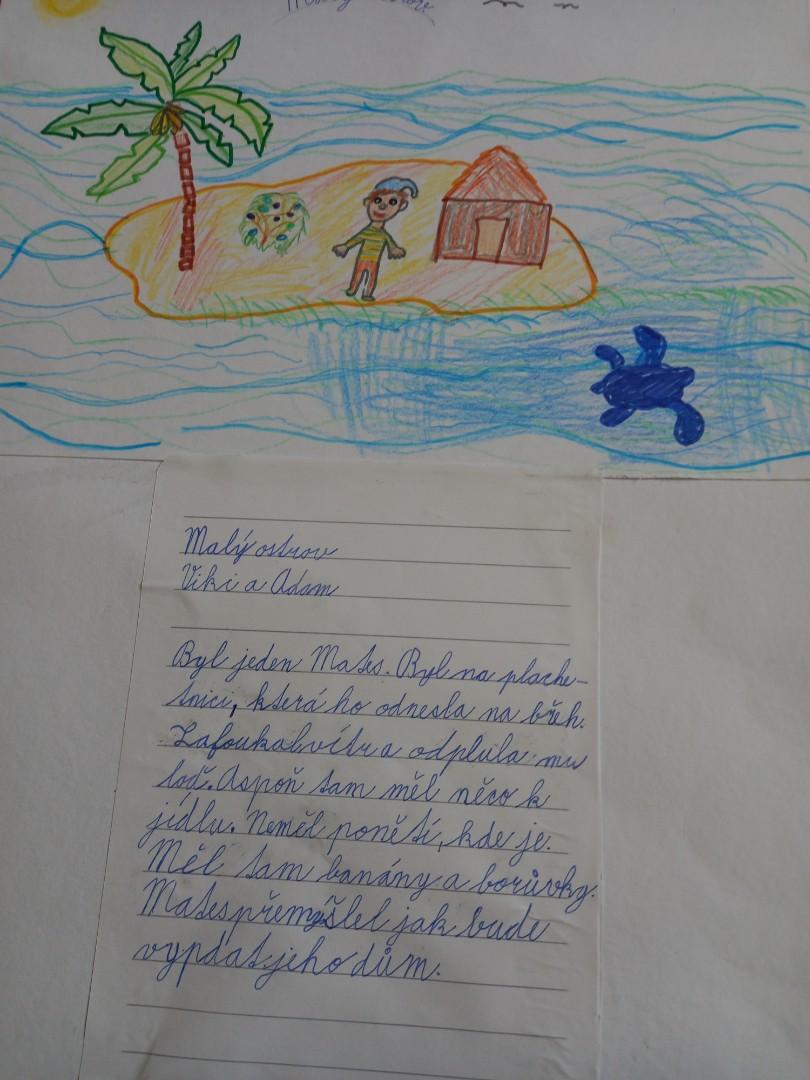 Malý ostrov
Malý ostrov
Viki a Adam
Byl jeden Mates. Byl na plache-
tnici, která ho odnesla na břeh.
Zafoukal vítr a odplula mu
loď. Aspoň tam měl něco k
jídlu. Neměl ponětí, kde je.
Měl tam banány a borůvky.
Mates přemýšlel jak bude
vypdat jeho dům.